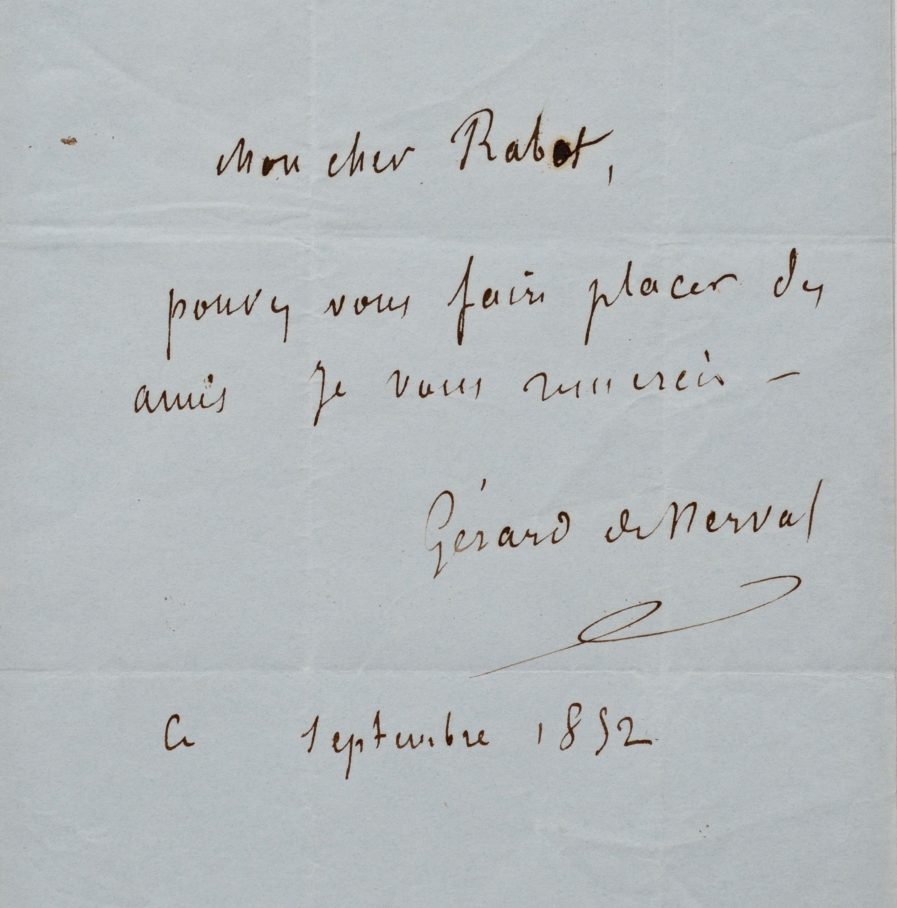 Mon cher Rabot,
pouvez vous faire placer des
amis Je vous remercie –
Gérard de Nerval
Ce septembre 1852